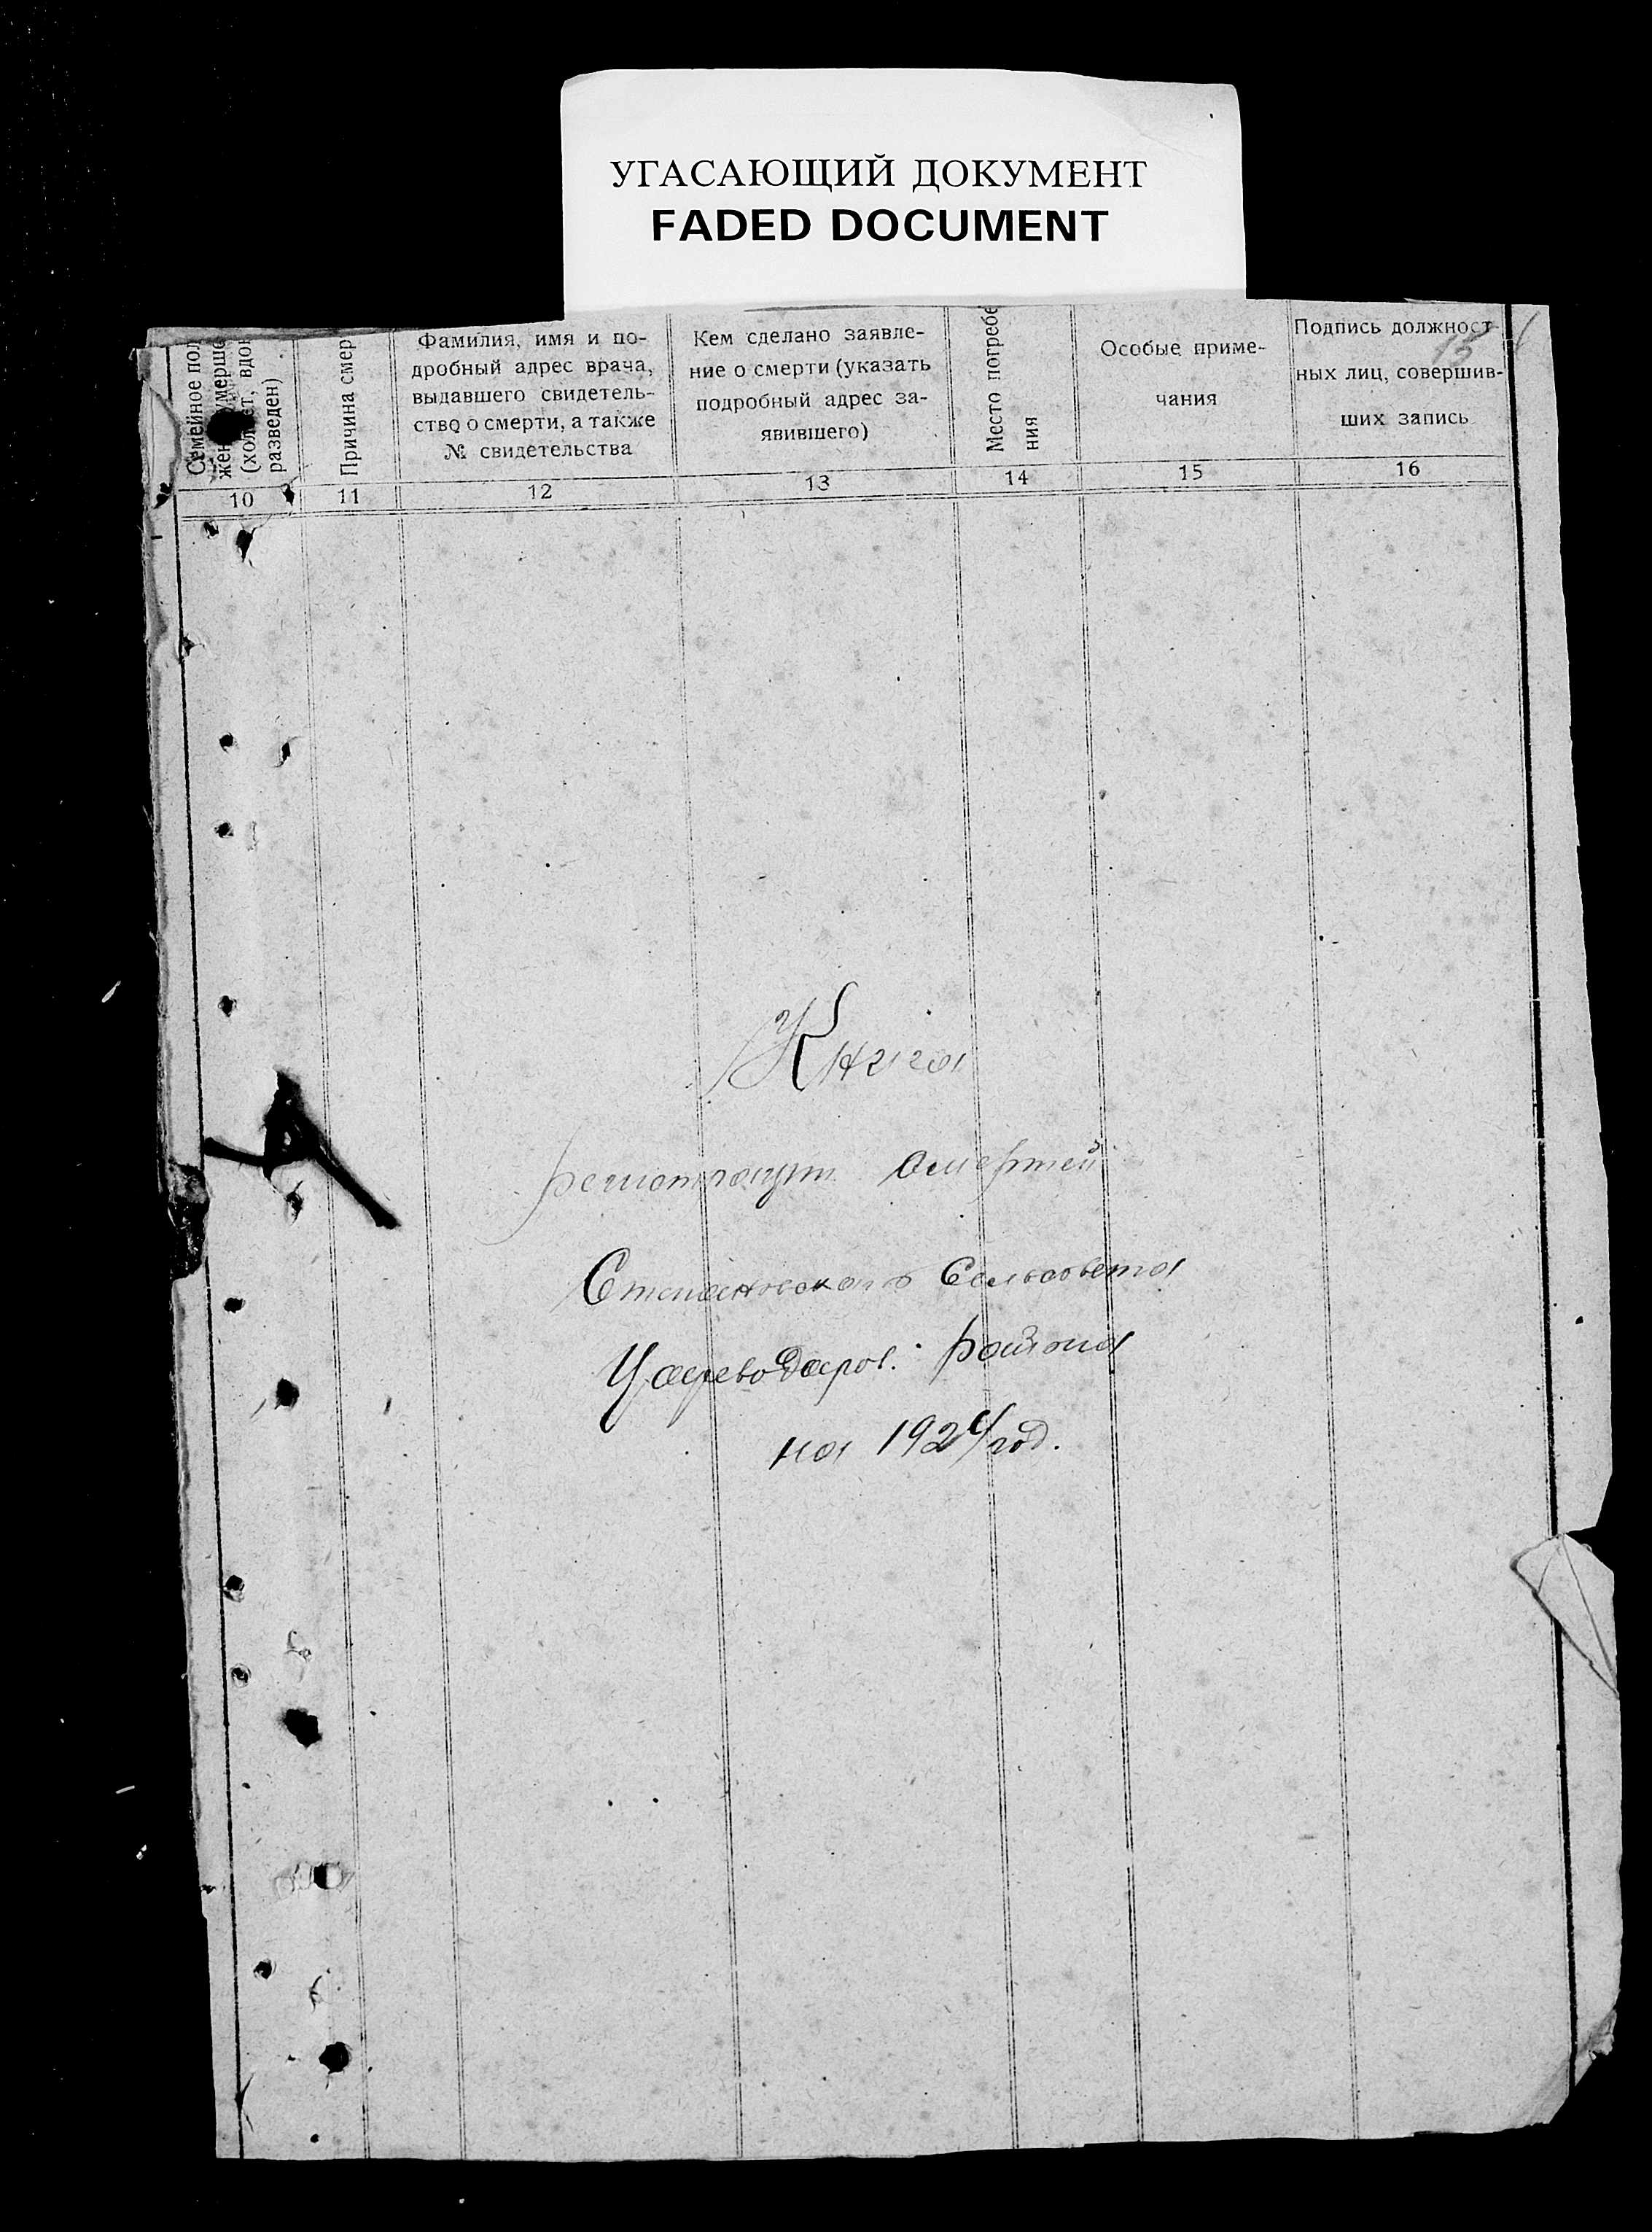 УГАСАЮЩИЙ ДОКУМЕНТ
FADED DOCUMENT
Семейное пол
жен умерше
(холост, вдов
разведен)
Причина смер
Фамилия, имя и по-
дробный адрес врача,
выдавшего свидетель-
ство о смерти, а также
№ свидетельства
Кем сделано заявле-
ние о смерти (указать
подробный адрес за-
явившего)
Место погребе
ния
Особые приме-
чания
Подпись должност-
ных лиц, совершив-
ших запись
15
10 11 12 13 14 15 16
Книга
смертей
Степановского Сельсовета
Цареводаров. района
на 1924 год.